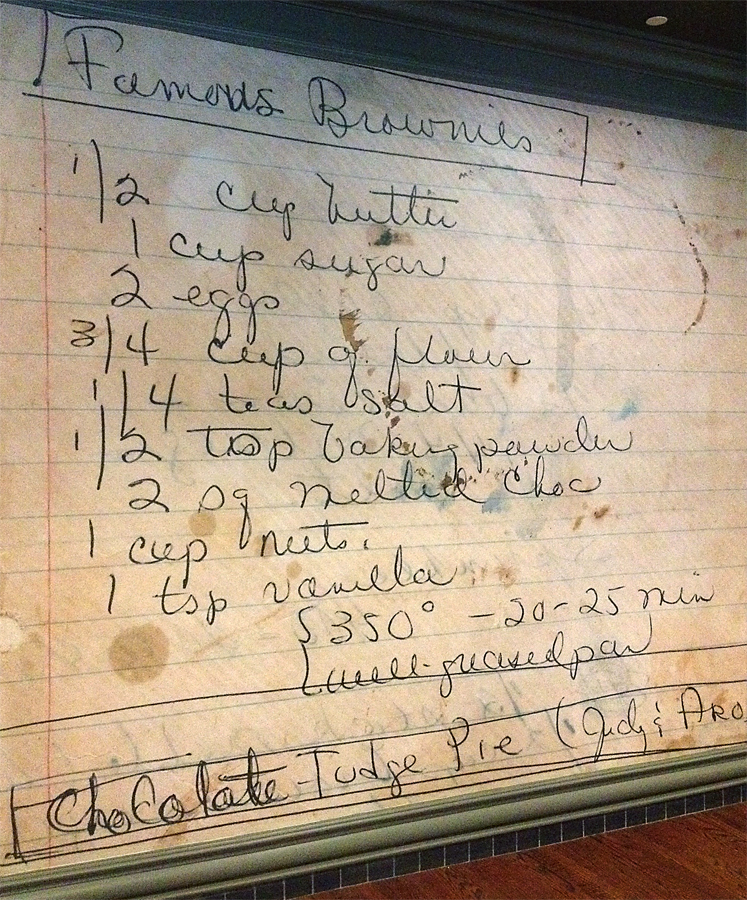 Famous Brownies
1/2 cup butter
1 cup sugar
2 eggs
3/4 cup of flour
1/4 teas salt
1/2 tsp baking powder
2 sq melted choc
1 cup nuts.
1 tsp vanilla
350° - 20-25 min
well-greased pan
Chocolate Fudge Pie (Judy & ARO